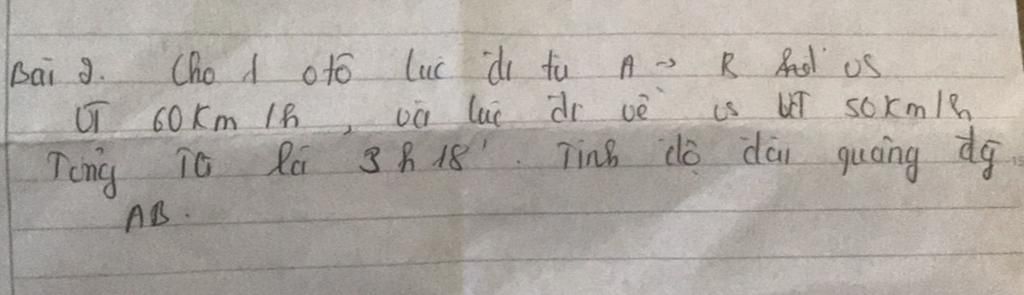 Bài 2. Cho 1 ôtô lúc đi từ A → B vs
VT 60 Km/h, và lúc đi về vs VT 50 Km/h
Tổng TG là 3h18'. Tính độ dài quãng đg
AB.